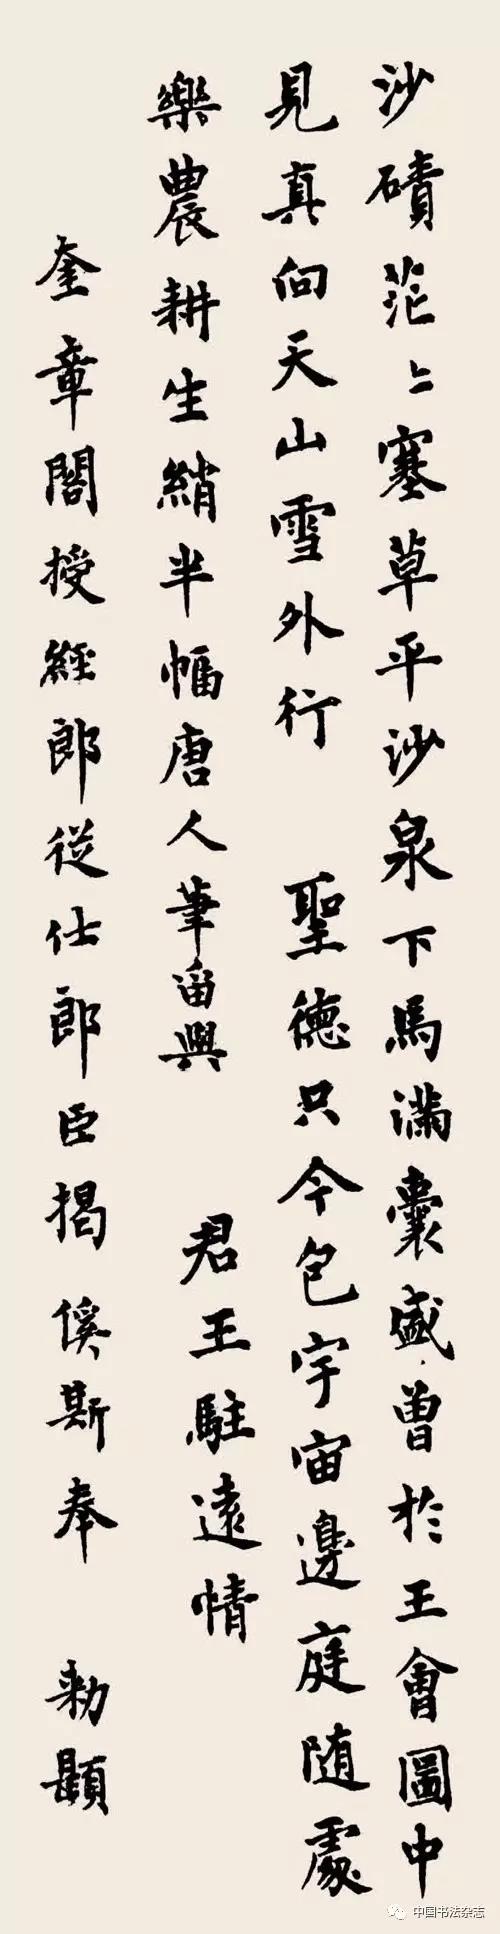 沙磧茫〻塞草平沙泉下馬滿囊盛曾於王會圖中
見真向天山雪外行 聖德只今包宇宙邊庭随處
樂農耕生綃半幅唐人筆留與
君王駐遠情
奎章閣授經郎從仕郎臣揭傒斯奉 勅題
中国书法杂志